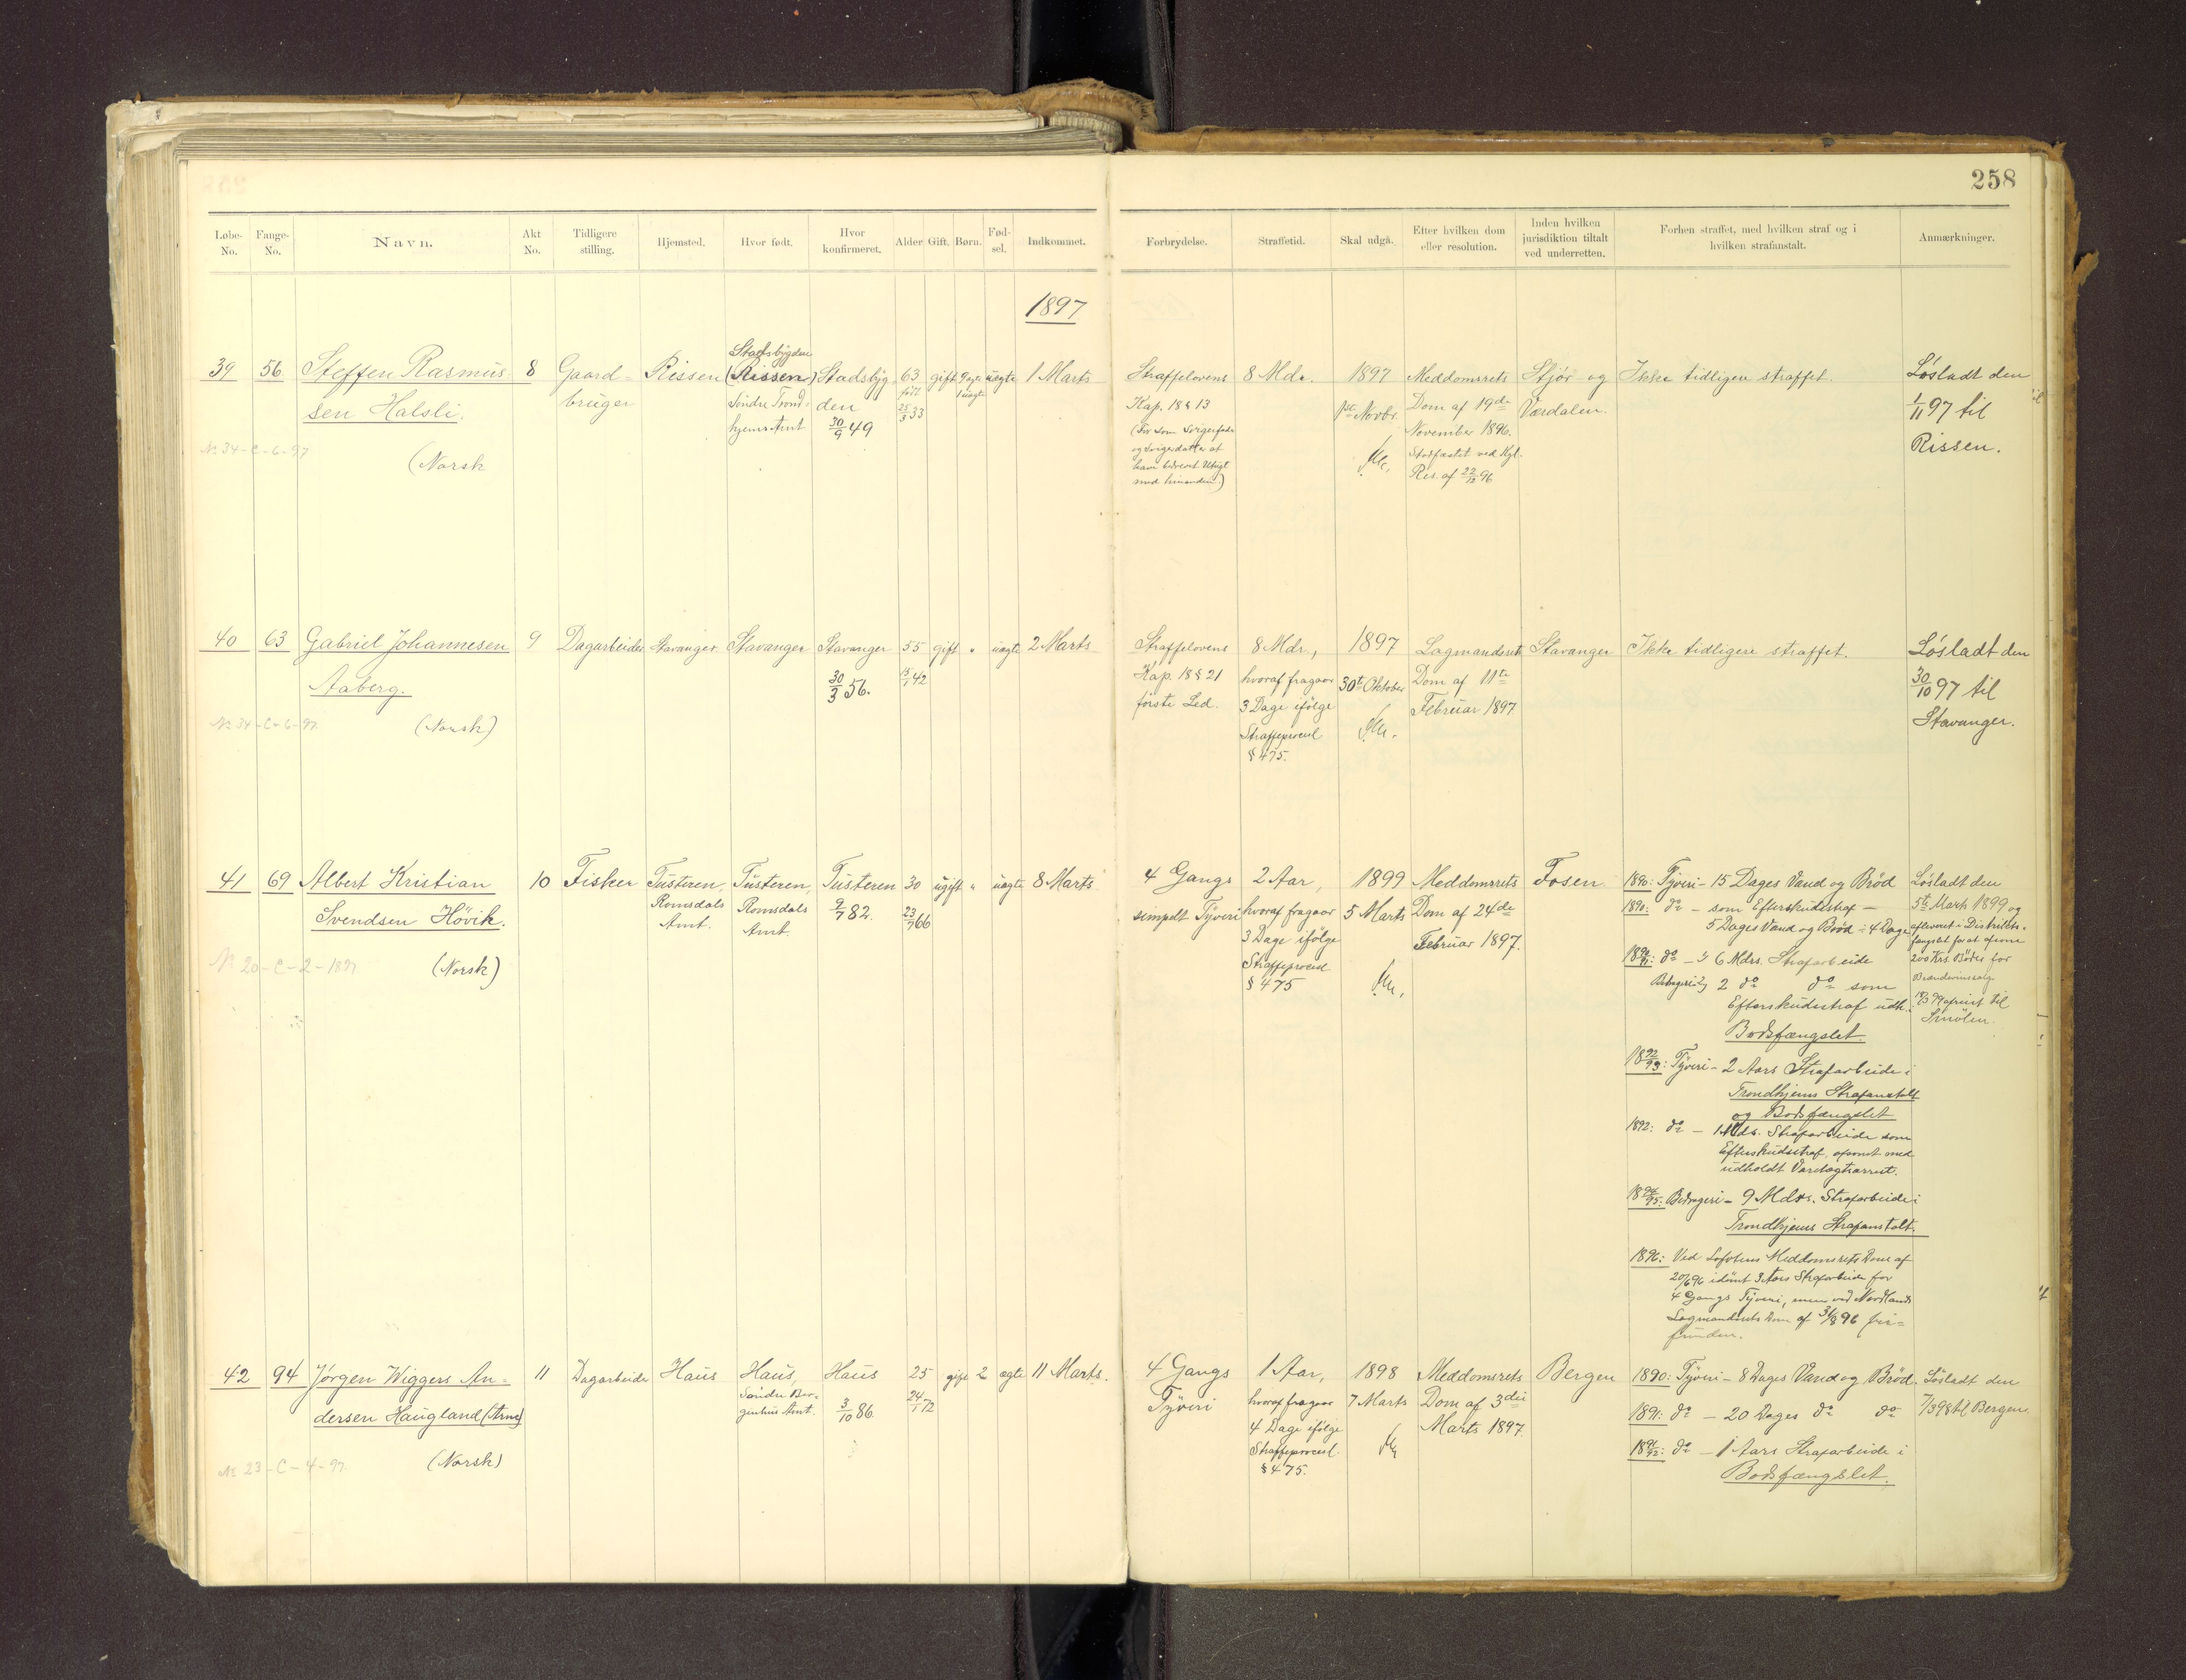 258
Løbe-No.
Fange-No.
Navn.
Akt No.
Tidligere stilling.
Hjemsted.
Hvor født.
Hvor konfirmeret.
Alder
Gift.
Børn.
Fød-sel.
Indkommet.
Forbrydelse.
Straffetid.
Skal udgå.
Efter hvilken dom eller resolution.
Inden hvilken jurisdiktion tiltalt ved underretten.
Forhen straffet, med hvilken straf og i hvilken strafanstalt.
Anmærkninger.
1897
39
56
Steffen Rasmus-
sen Halsli.
(Norsk
No 34-C-6-97
8
Gaard-
bruger
Rissen
Stadsbygden
(Rissen)
Søndre Trond-
hjems Amt
Stadsbyg
den
30/9 49
63
født
25/3 33
gift
9 ægte
1 uægte
uægte
1 Marts
Straffelovens
Kap. 18 § 13
(For som Svigerfader
og Svigerdatter at
have bedrevet Utugt
med hinanden.)
8 Mdr.
1897
1ste Novbr.
Meddomsrets
Dom af 19de
November 1896.
Stadfæstet ved Kgl.
Res. af 22/12 96
Stjør- og
Værdalen.
Ikke tidligere straffet.
Løsladt den
1/11 97 til
Rissen.
40
63
Gabriel Johannesen
Aaberg.
(Norsk)
No 34-C-6-97.
9
Dagarbeider
Stavanger.
Stavanger
Stavanger
30/3 56.
55
15/1 42
gift
"
uægte
2 Marts
Straffelovens
Kap. 18 § 21
første Led.
8 Mdr.,
hvoraf fragaar
3 Dage ifølge
Straffeprocesl.
§ 475.
1897
30te Oktober
Lagmandsret
Dom af 11te
Februar 1897
Stavanger
Ikke tidligere straffet.
Løsladt den
30/10 97 til
Stavanger.
41
69
Albert Kristian
Svendsen Hövik.
(Norsk)
No 20-C-2-1897.
10
Fisker
Tusteren,
Romsdals
Amt.
Tusteren,
Romsdals
Amt.
Tusteren
9/7 82.
30
23/7 66
ugift
"
uægte
8 Marts
4 Gangs
simpelt Tyveri
2 Aar,
hvoraf fragaar
3 Dage ifølge
Straffeprocesl.
§ 475
1899
5 Marts
Meddomsrets
Dom af 24de
Februar 1897.
Fosen
1890: Tyveri - 15 Dages Vand og Brød
1890: do - som Efterskudsstraf -
5 Dages Vand og Brød ÷ 4 Dage
1890/91: do - 6 Mdrs. Strafarbeide
Bedrageri 2 do do som
Efterskudsstraf udh.
Bodsfængslet
1892/93: Tyveri - 2 Aars Strafarbeide i
Trondhjems Strafanstalt
og Bodsfængslet
1892: do - 1 Mds. Strafarbeide som
Efterskudsstraf, afsonet med
udholdt Varetægtsarrest.
1894/95: Bedrageri - 9 Mdrs. Strafarbeide i
Trondhjems Strafanstalt.
1896: Ved Lofotens Meddomsrets Dom af
20/6 96 idømt 3 Aars Strafarbeide for
4 Gangs Tyveri, men ved Nordlands
Lagmandsrets Dom af 31/8 96 fri-
funden.
Løsladt den
5te Marts 1899 og
afleveret i Distrikts-
fængslet for at afsone
200 Krs. Bøder for
Brændevinssalg
afreist til
Smölen.
42
94
Jörgen Wiggers An-
dersen Haugland (Arne)
(Norsk)
No 23-C-4-97.
11
Dagarbeider
Haus
Haus,
Søndre Ber-
genhus Amt.
Haus
3/10 86.
25
24/1 72
gift
2
ægte
11 Marts.
4 Gangs
Tyveri
1 Aar,
hvoraf fragaar
4 Dage ifølge
Straffeprocesl.
§ 475.
1898
7 Marts
Meddomsrets
Dom af 3die
Marts 1897.
Bergen
1890: Tyveri - 8 Dages Vand og Brød.
1891: do - 20 Dages do do
1891/92: do - 1 Aars Strafarbeide i
Bodsfængslet.
Løsladt den
7/3 98 til Bergen.